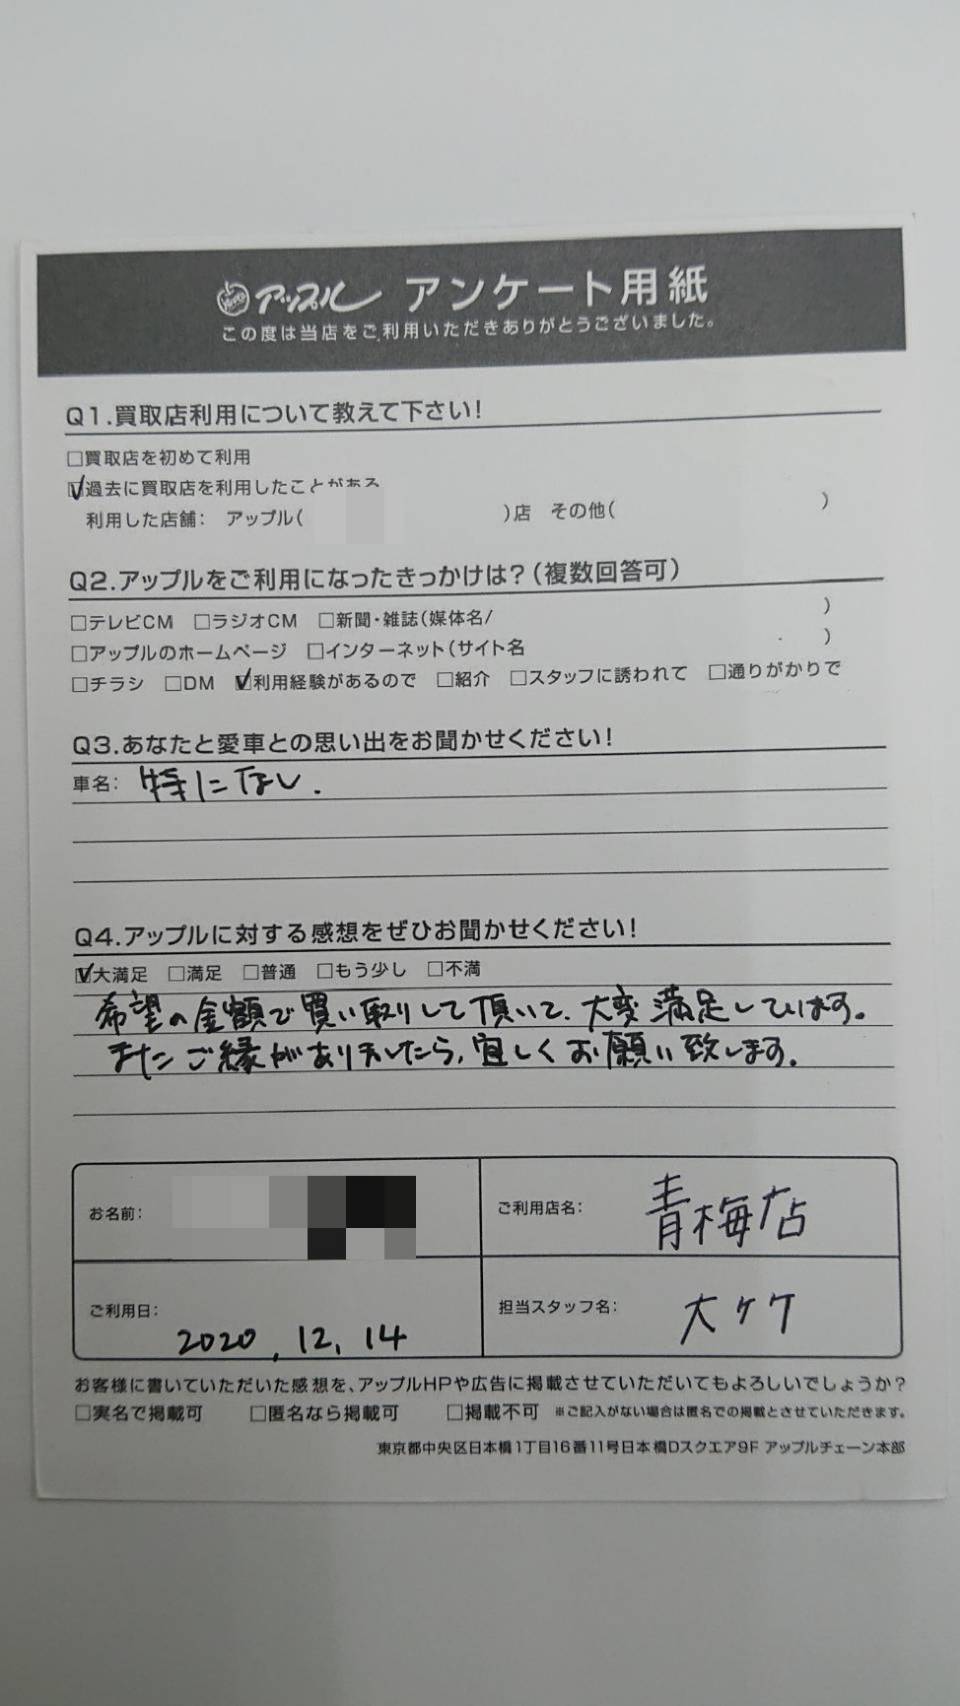 アップル アンケート用紙
この度は当店をご利用いただきありがとうございました。
Q1.買取店利用について教えて下さい!
□買取店を初めて利用
☑過去に買取店を利用したことがある
利用した店舗: アップル( )店 その他( )
Q2.アップルをご利用になったきっかけは?(複数回答可)
□テレビCM □ラジオCM □新聞・雑誌(媒体名/ )
□アップルのホームページ □インターネット(サイト名 )
□チラシ □DM ☑利用経験があるので □紹介 □スタッフに誘われて □通りがかりで
Q3.あなたと愛車との思い出をお聞かせください!
車名: 特になし.
Q4.アップルに対する感想をぜひお聞かせください!
☑大満足 □満足 □普通 □もう少し □不満
希望の金額で買い取りして頂いて、大変満足しています。
またご縁がありましたら、宜しくお願い致します。
お名前:
ご利用店名: 青梅店
ご利用日: 2020.12.14
担当スタッフ名: 大ケケ
お客様に書いていただいた感想を、アップルHPや広告に掲載させていただいてもよろしいでしょうか?
□実名で掲載可 □匿名なら掲載可 □掲載不可 ※ご記入がない場合は匿名での掲載とさせていただきます。
東京都中央区日本橋1丁目16番11号日本橋Dスクエア9F アップルチェーン本部